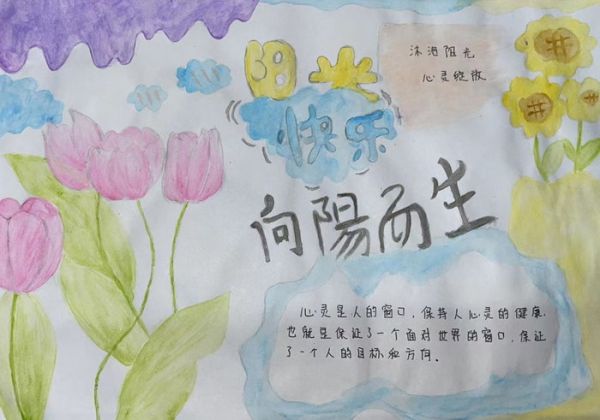 阳光
快乐
沐浴阳光
心灵绽放
向陽而生
心灵是人的窗口，保持人心灵的健康，
也就是保证了一个面对世界的窗口，保证
了一个人的目标和方向。